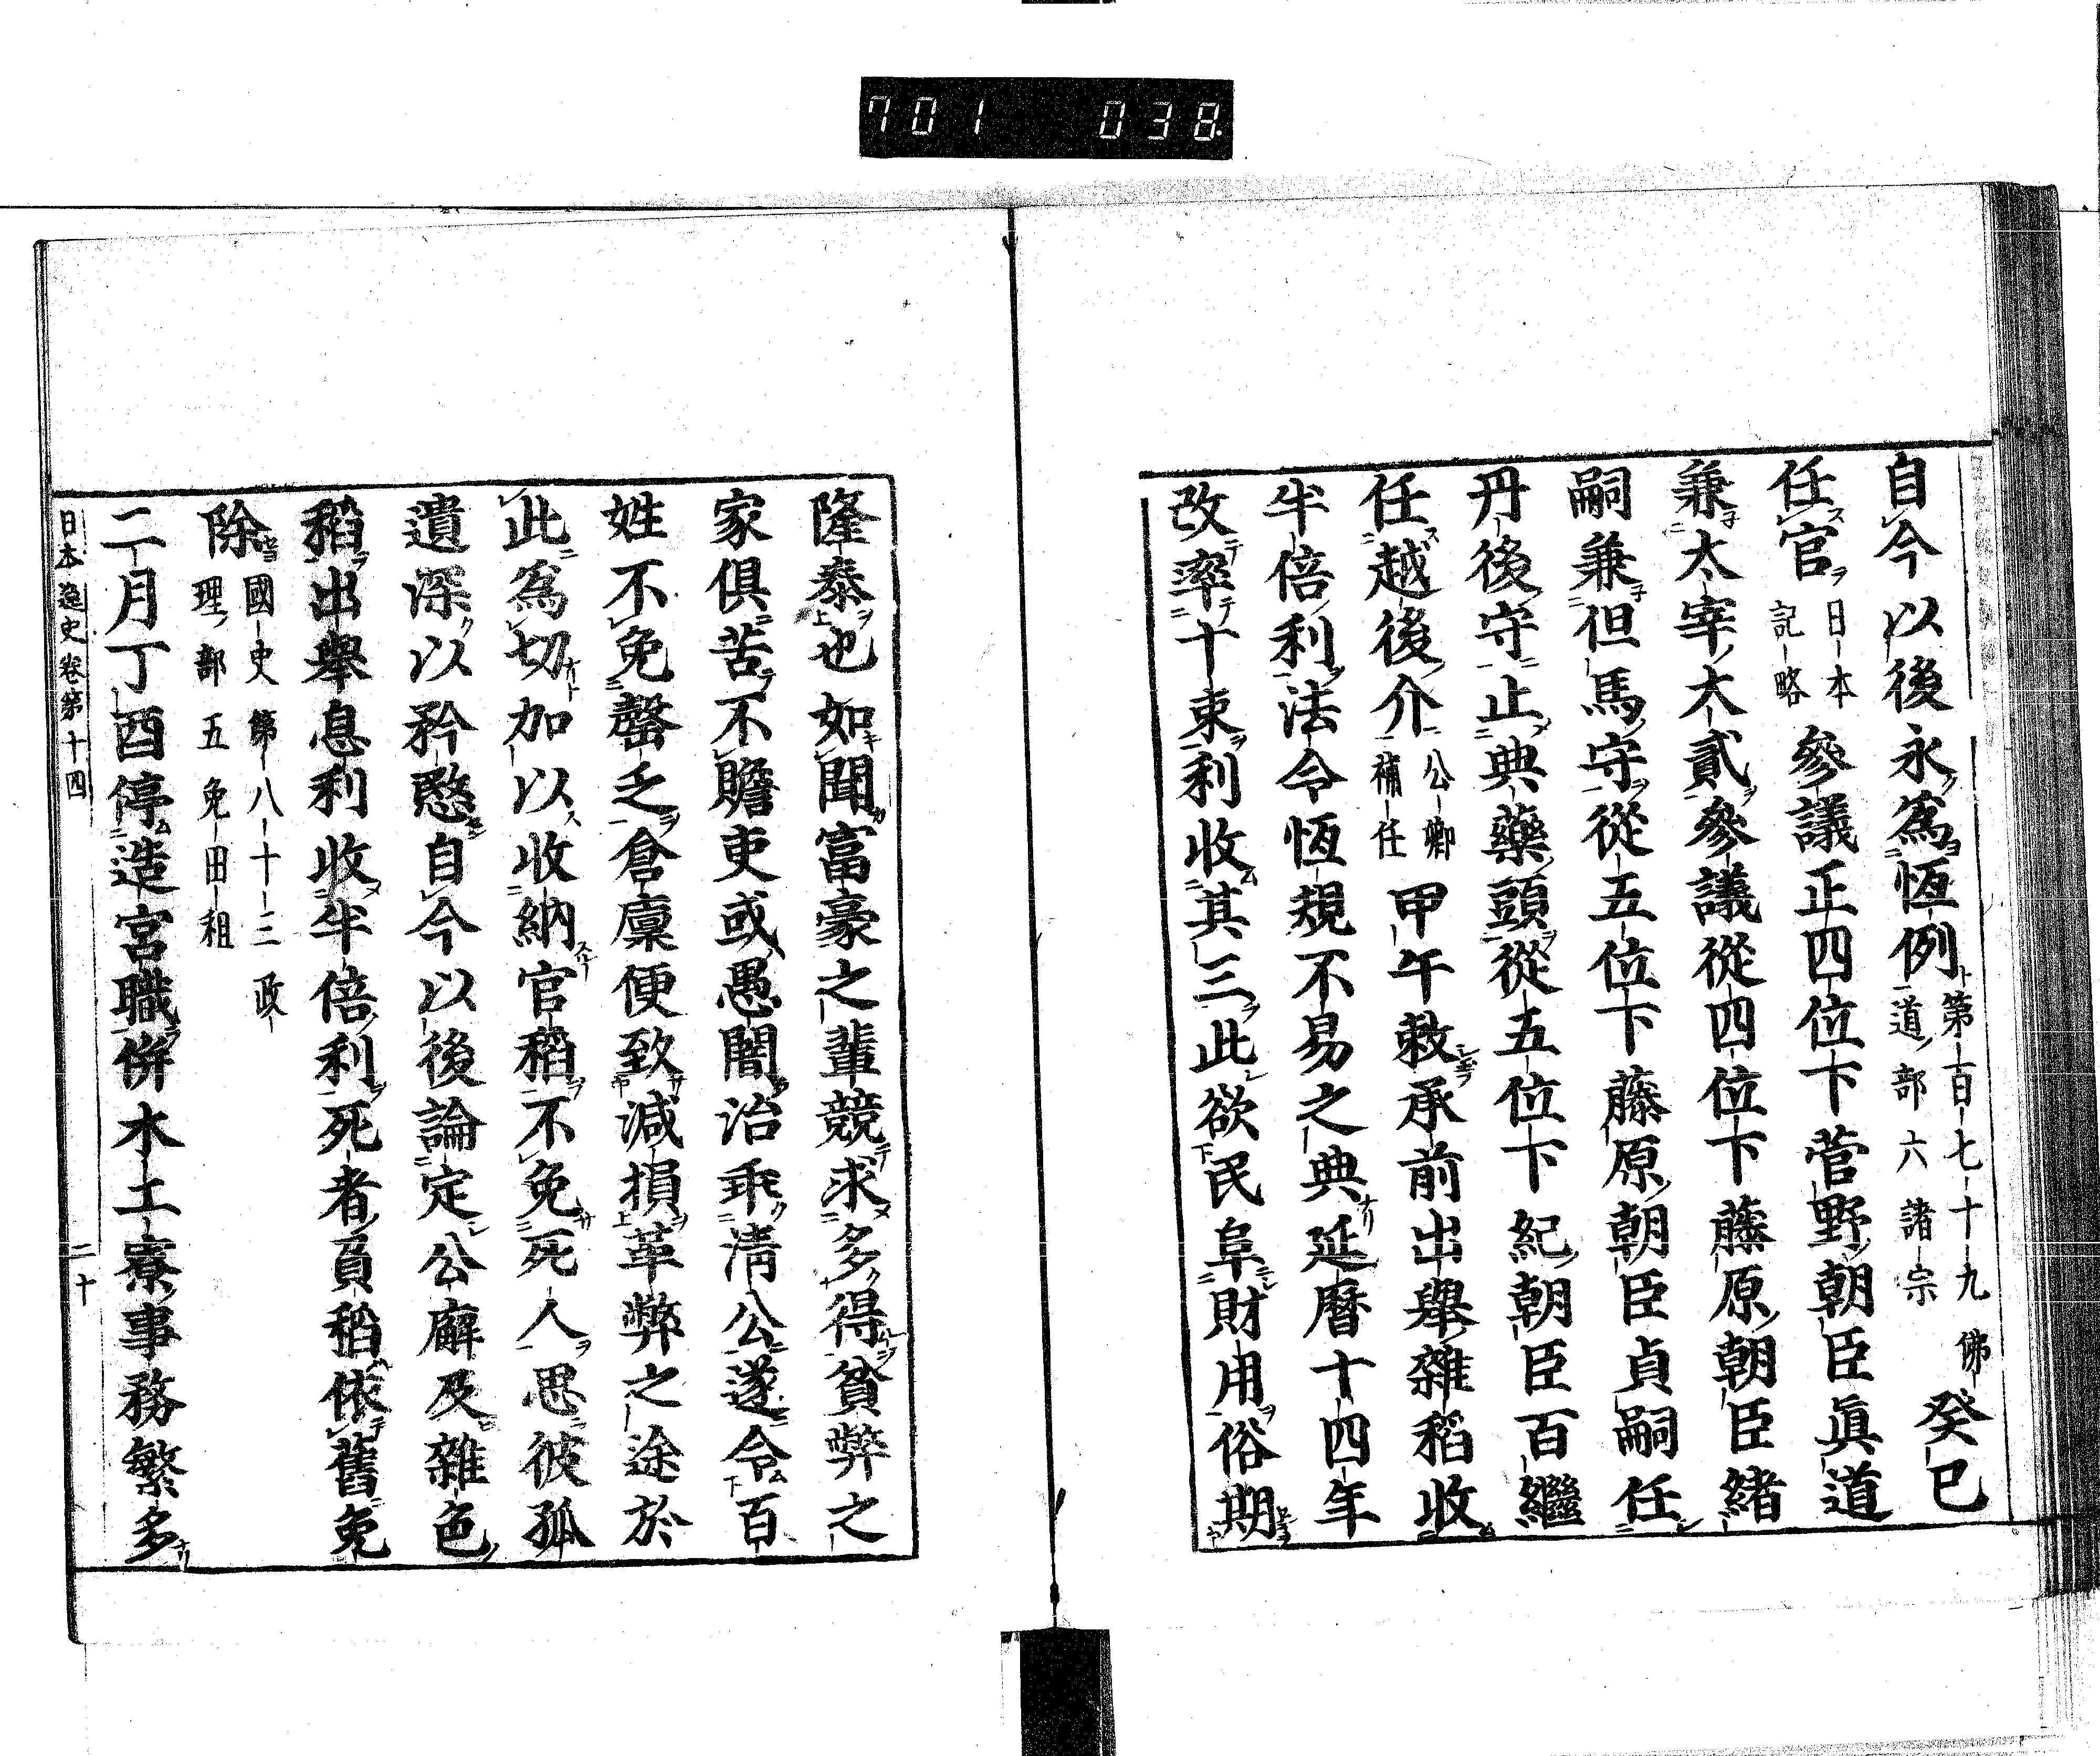 701 038
自今以後永爲恆例第百七十九佛道部六諸宗癸巳
任官日本記略參議正四位下菅野朝臣眞道
兼太宰大貳參議從四位下藤原朝臣緒
嗣兼但馬守從五位下藤原朝臣貞嗣任
丹後守止典藥頭從五位下紀朝臣百繼
任越後介公卿補任甲午敕承前出舉雜稻收
半倍利法令恆規不易之典延曆十四年
改率十束利收其三此欲民阜財用俗期
隆泰也如聞富豪之輩競求多得貧弊之
家俱苦不贍吏或愚闇治乖淸公遂令百
姓不免罄乏倉廩便致減損革弊之途於
此爲切加以收納官稻不免死人思彼孤
遺深以矜愍自今以後論定公廨及雜色
稻出舉息利收半倍利死者負稻依舊免
除國史第八十三政理部五免田租
二月丁酉停造宮職併木工寮事務繁多
日本逸史卷第十四 二十